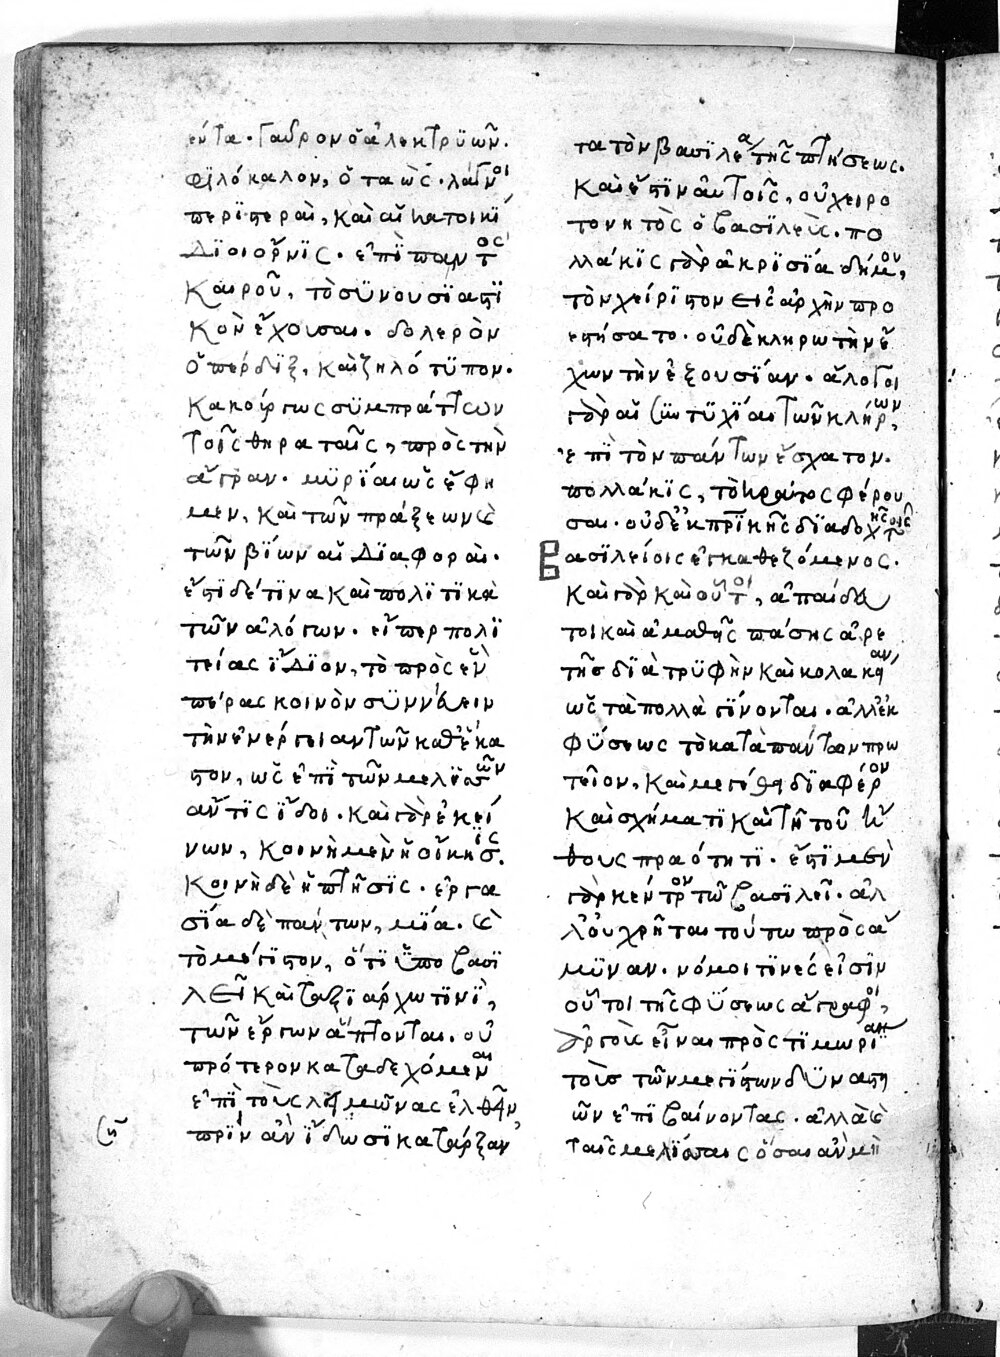 έντα· Γαῦρον ὁ ἀλεκτρυών.
φιλόκαλον, ὁ ταὼς· λάγνοι
περιστεραὶ, καὶ αἱ κατοικί
διοι ὄρνις· ἐπὶ παντὸς
καιροῦ, τὸ συνουσιαστι
κὸν ἔχουσαι. δολερὸν
ὁ πέρδιξ, καὶ ζηλότυπον.
κακούργως συμπράττων
τοῖς θηραταῖς, πρὸς τὴν
ἄγραν. μυρίαι ὡς ἔφη
μεν, καὶ τῶν πράξεων καὶ
τῶν βίων αἱ διαφοραὶ.
ἔστι δέ τινα καὶ πολιτικὰ
τῶν ἀλόγων. εἴπερ πολι
τείας ἴδιον, τὸ πρὸς ἓν
πέρας κοινὸν συννεύειν
τὴν ἐνέργειαν τῶν καθέκα
στον, ὡς ἐπὶ τῶν μελισσῶν
ἄν τις ἴδοι. καὶ γὰρ ἐκεί
νων, κοινὴ μὲν ἡ οἴκησις.
κοινὴ δὲ ἡ πτῆσις. ἐργα
σία δὲ πάντων, μία. καὶ
τὸ μέγιστον, ὅτι ὑπὸ βασι
λεῖ καὶ ταξιάρχω τινὶ,
τῶν ἔργων ἅπτονται. οὐ
πρότερον καταδεχόμεναι
ἐπὶ τοὺς λειμῶνας ἐλθεῖν
πρὶν ἂν ἴδωσι κατάρξαν
τα τὸν βασιλέα τῆς πτήσεως.
καὶ ἔστιν αὐτοῖς, οὐ χειρο
τονητὸς ὁ βασιλεὺς. πο
λλάκις γὰρ ἀκρισία δήμου,
τὸν χείριστον εἰς ἀρχὴν προ
εστήσατο. οὐδὲ κληρωτὴν ἔ
χων τὴν ἐξουσίαν. ἄλογοι
γὰρ αἱ συντυχίαι τῶν κλήρων,
ἐπὶ τὸν πάντων ἔσχατον.
πολλάκις, τὸ κράτος φέρου
σαι. οὐδ' ἐκ πατρικῆς διαδοχῆς τοῖς
Βασιλείοις ἐγκαθεζόμενος.
καὶ γὰρ καὶ οὗτοι, ἀπαίδευ
τοι καὶ ἀμαθεῖς πάσης ἀρε
τῆς διὰ τρυφὴν καὶ κολακείαν,
ὡς τὰ πολλὰ γίνονται. ἀλλ' ἐκ
φύσεως τὸ κατὰ πάντων πρω
τεῖον, καὶ μεγέθει διαφέρον
καὶ σχήματι καὶ τῆ τοῦ ἤ
θους πραότητι. ἔστι μὲν
γὰρ κέντρον τῶ βασιλεῖ. ἀλ
λ' οὐ χρῆται τούτω πρὸς ἄ
μυναν. νόμοι τινές εἰσιν
οὗτοι τῆς φύσεως ἄγραφοι,
ἀργοὺς εἶναι πρὸς τιμωρίαν
τοὺς τῶν μεγίστων δυναστει
ῶν ἐπιβαίνοντας. ἀλλὰ καὶ
ταῖς μελίσσαις ὅσαι ἂν μὴ